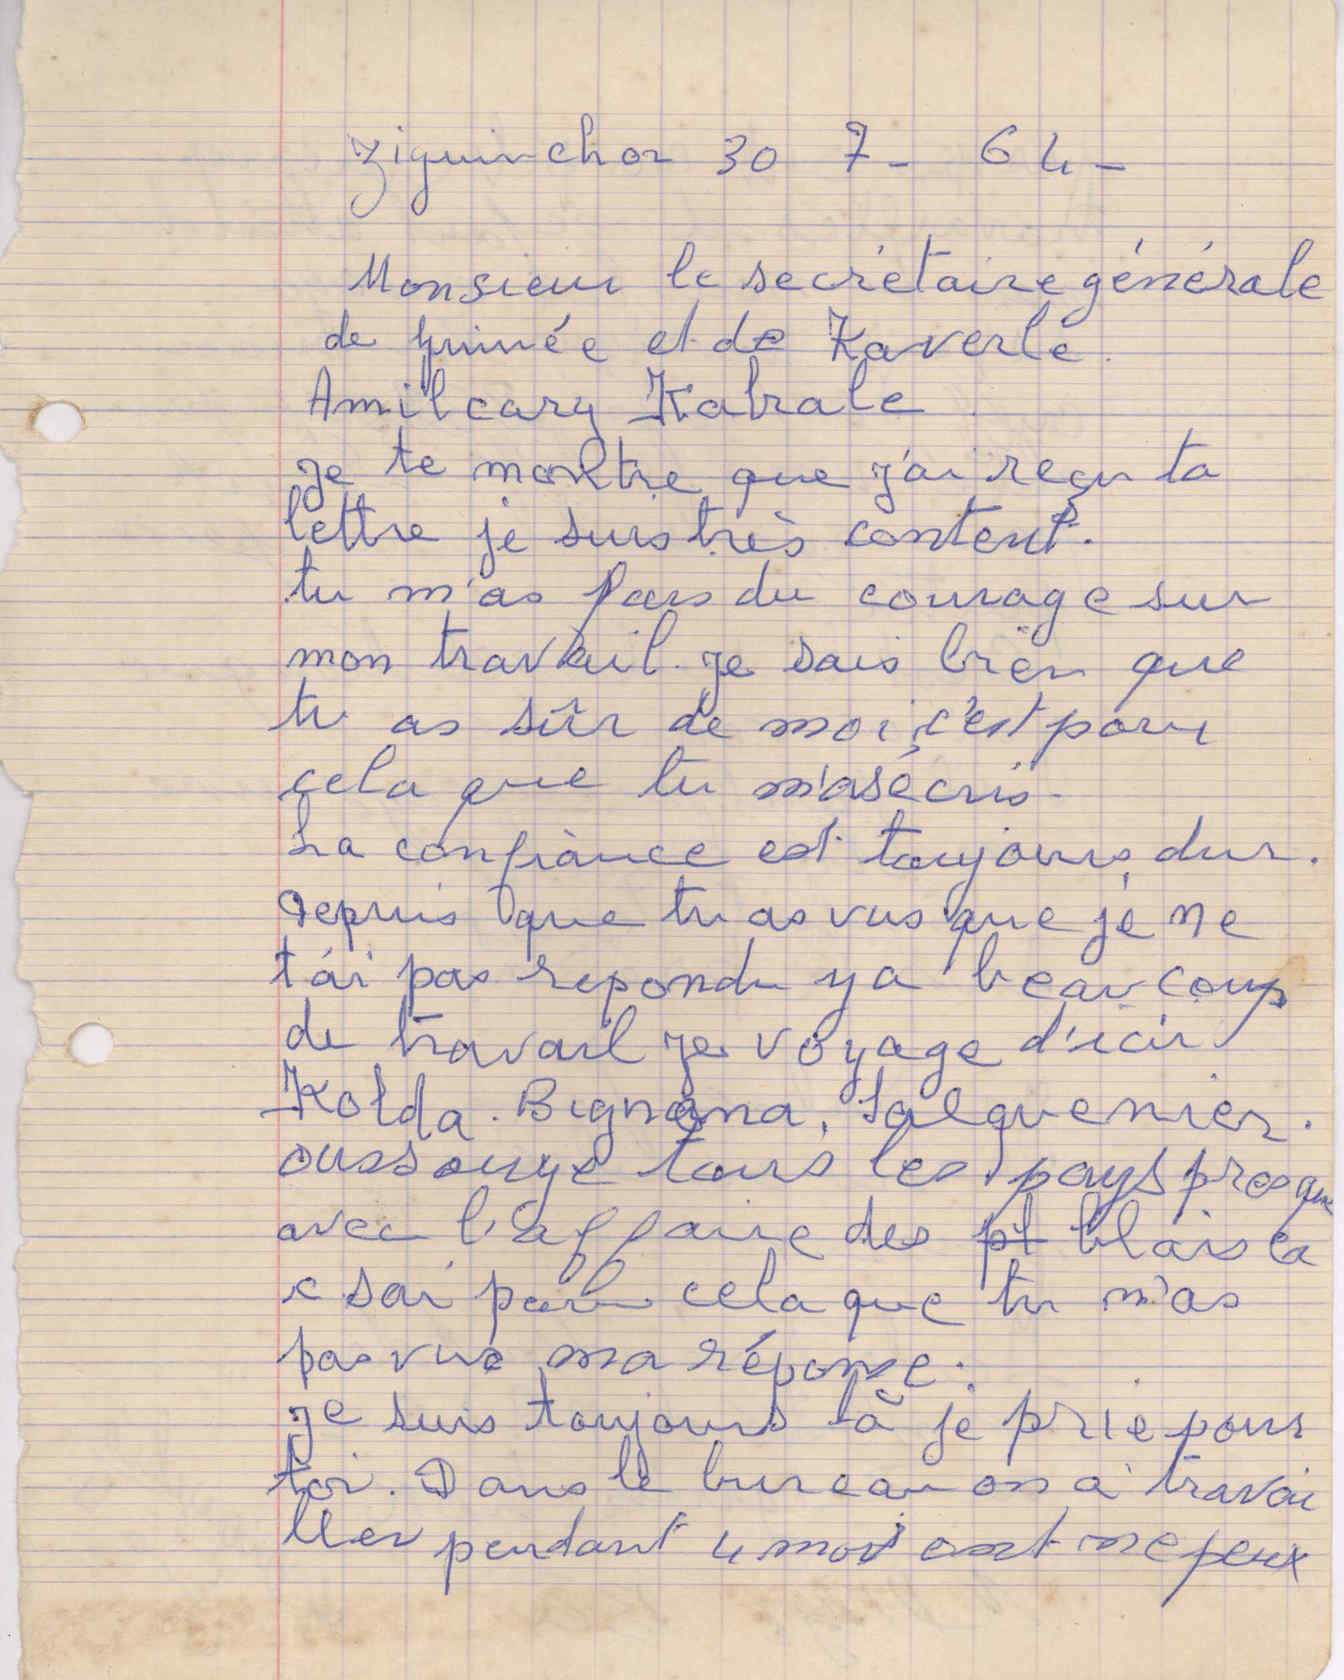 Ziguinchor 30 7 - 64 -
Monsieur le secrétaire générale
de guinée et de Kaverle.
Amilcary Kabrale.
je te montre que j'ai reçu ta
lettre je suis très content.
tu m'as fais du courage sur
mon travail. je sais bien que
tu as sûr de moi, c'est pour
cela que tu m'asécris.
La confiance est toujours dur.
Depuis que tu as vus que je ne
t'ai pas repondu ya beaucoup
de travail je voyage d'ici
Kolda. Bignona, Salquenier.
oussouye tous les pays presque
avec l'affaire des blais ca
c sai pour cela que tu m'as
pas vus ma réponse.
je suis toujours là je prie pour
toi. Dans le bureau on a travai
ller pendant 4 mois ont ne peux